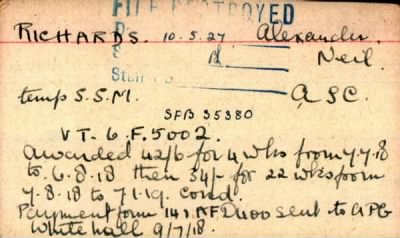 FILE DESTROYED
RICHARDS. 10.5.27 Alexander
Neil.
temp S.S.M. ASC.
SFB 35380
VT. 6. F. 5002.
Awarded 42/6 for 4 wks from 7.7.18
to 6.8.18 then 34/- for 22 wks from
7.8.18 to 7.1.19. cond.
Payment form sent to APG
Whitehall 9/7/18.